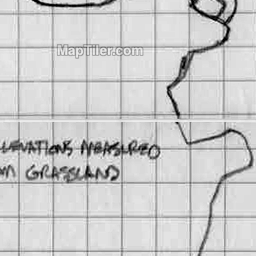 MapTiler.com
LEVATIONS MEASURED
GRASSLAND